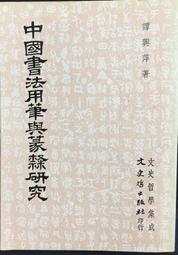 譚興萍著
中國書法用筆與篆隸研究
文史哲學集成
文史哲出版社印行